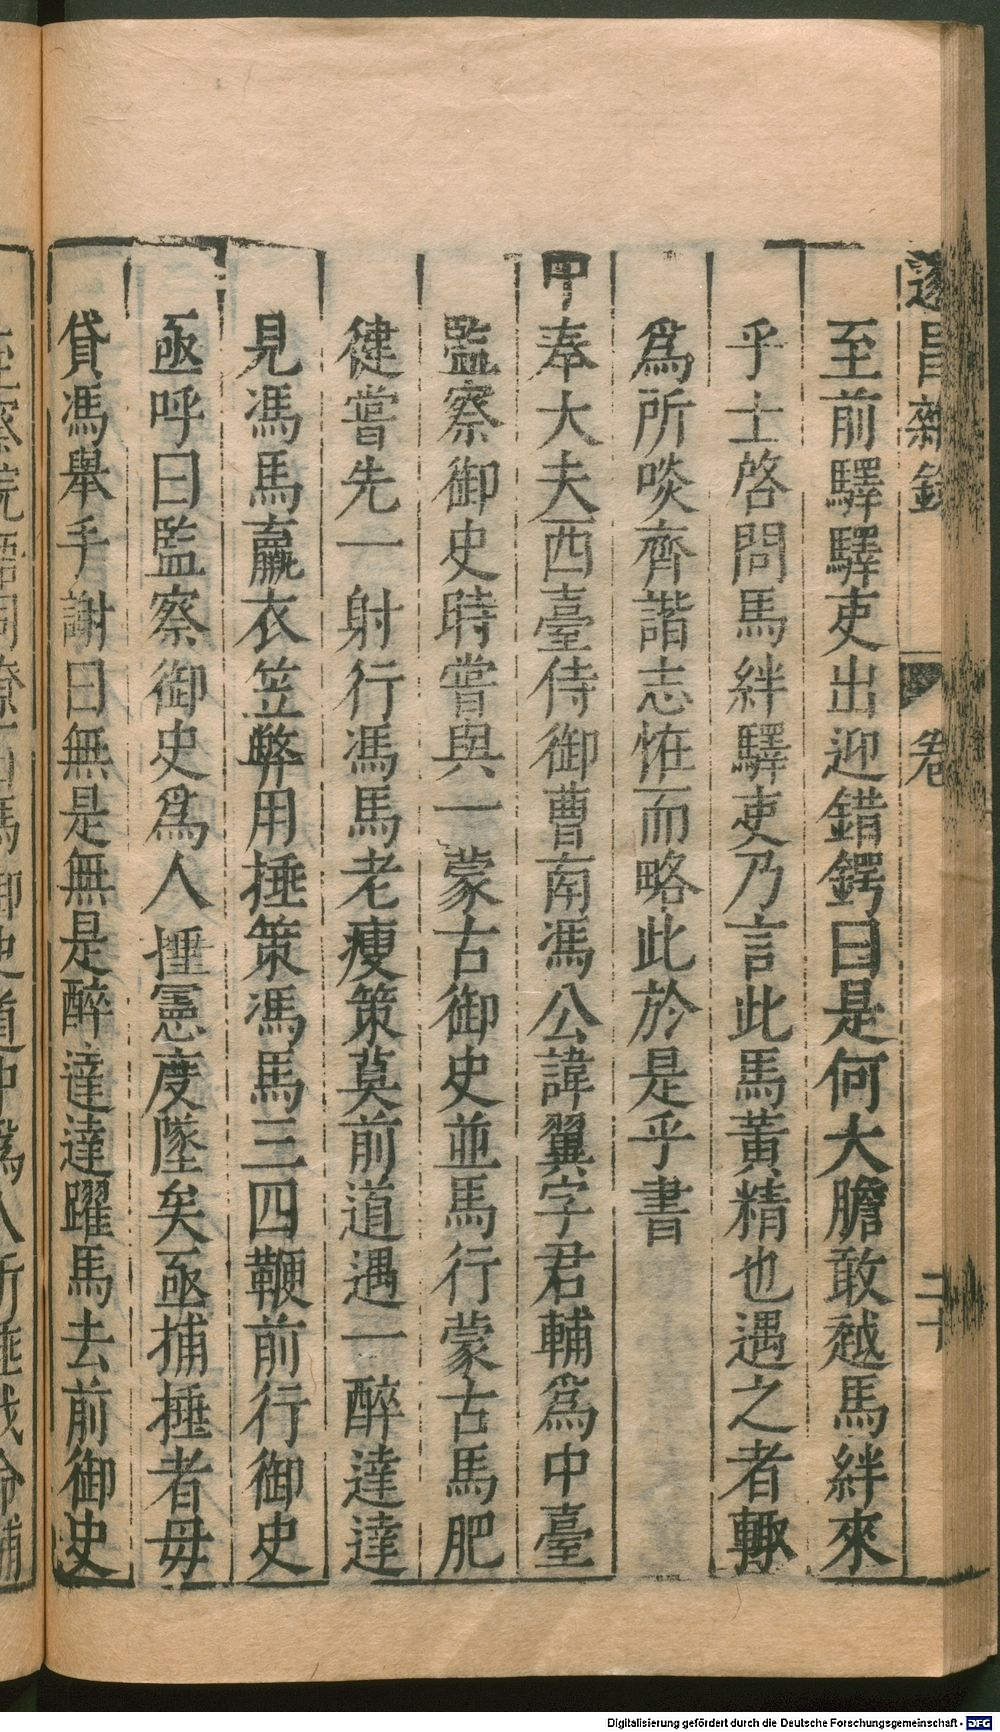 遂昌雜錄
卷
二十
至前驛驛吏出迎錯鍔曰是何大膽敢越馬絆來
乎士啓問馬絆驛吏乃言此馬黃精也遇之者輙
爲所啖齊諧志恠而略此於是乎書
中奉大夫西臺侍御曹南馮公諱翼字君輔爲中臺
監察御史時嘗與一蒙古御史並馬行蒙古馬肥
徤嘗先一射行馮馬老瘦策莫前道遇一醉達達
見馮馬羸衣笠弊用捶策馮馬三四鞭前行御史
亟呼曰監察御史爲人捶憲度墜矣亟捕捶者毋
貸馮舉手謝曰無是無是醉達達躍馬去前御史
Digitalisierung gefördert durch die Deutsche Forschungsgemeinschaft - DFG